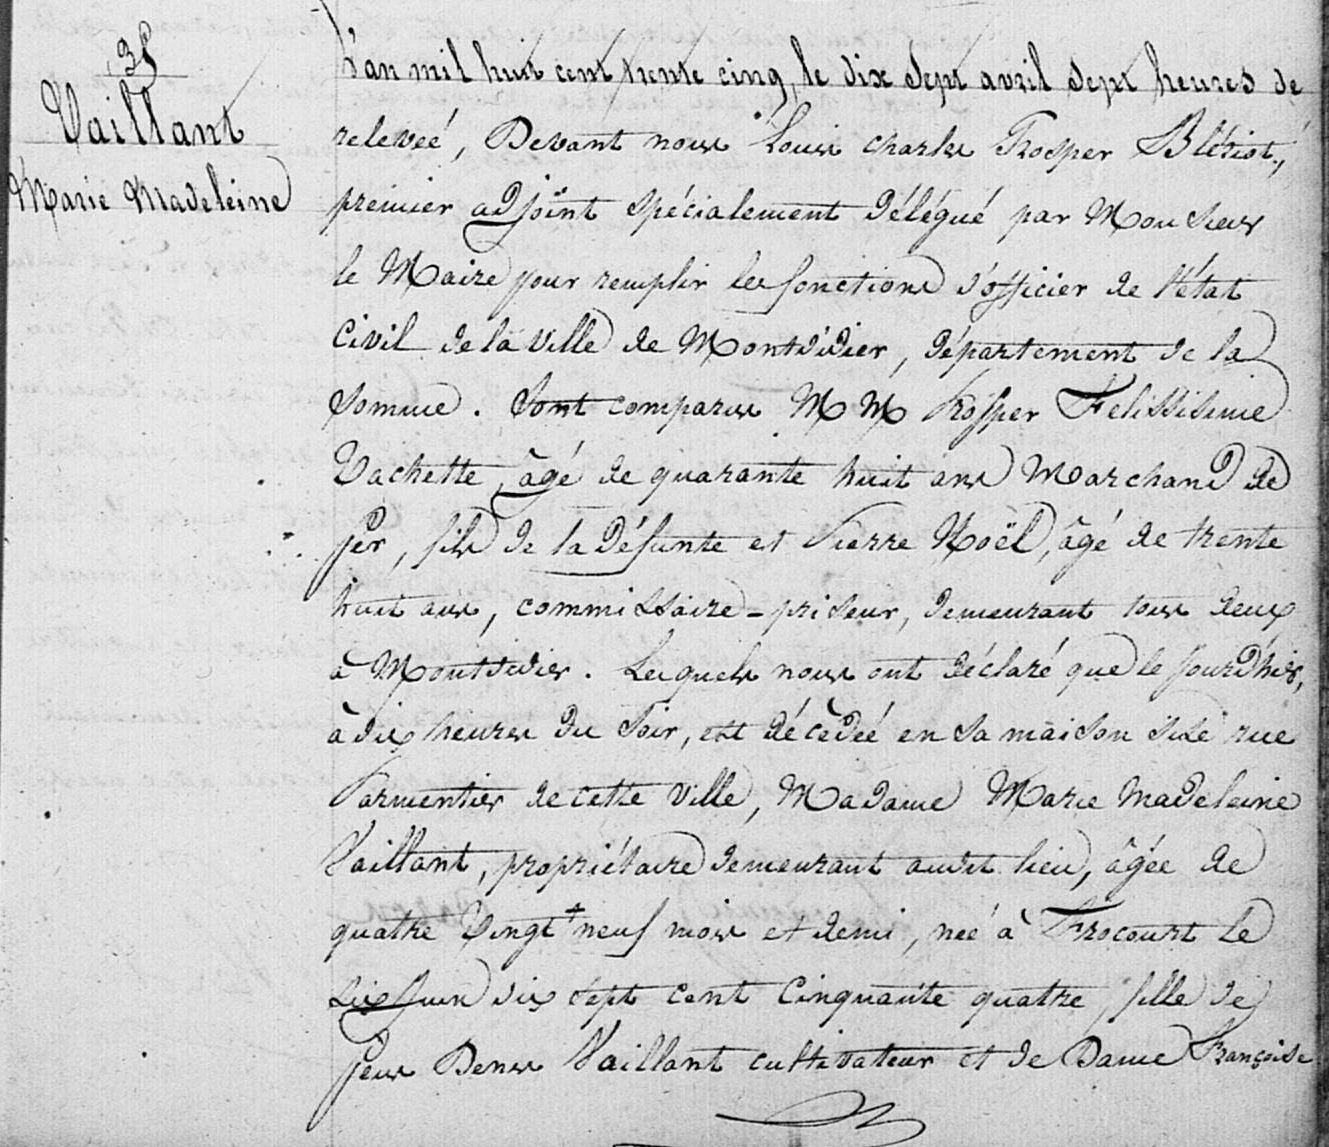 35
Vaillant
Marie Madeleine
L'an mil huit cent trente cinq, le dix sept avril sept heures de
relevée, Devant nous Louis Charles Prosper Blériot,
premier adjoint spécialement délégué par Monsieur
le Maire pour remplir les fonctions d'officier de l'état
civil de la ville de Montdidier, département de la
Somme. Sont comparus MM Prosper Félissisime
Vachette, âgé de quarante huit ans Marchand de
fer, fils de la défunte et Pierre Noël, âgé de trente
huit ans, commissaire-priseur, demeurant tous deux
à Montdidier. Lesquels nous ont déclaré que le jourd'hier,
à dix heures du soir, est décédée en sa maison sise rue
Parmentier de cette ville, Madame Marie Madeleine
Vaillant, propriétaire demeurant audit lieu, âgée de
quatre vingt + neuf mois et demi, née à Frocourt le
six Juin dix sept cent cinquante quatre, fille de
feus Denis Vaillant cultivateur et de Dame Françoise